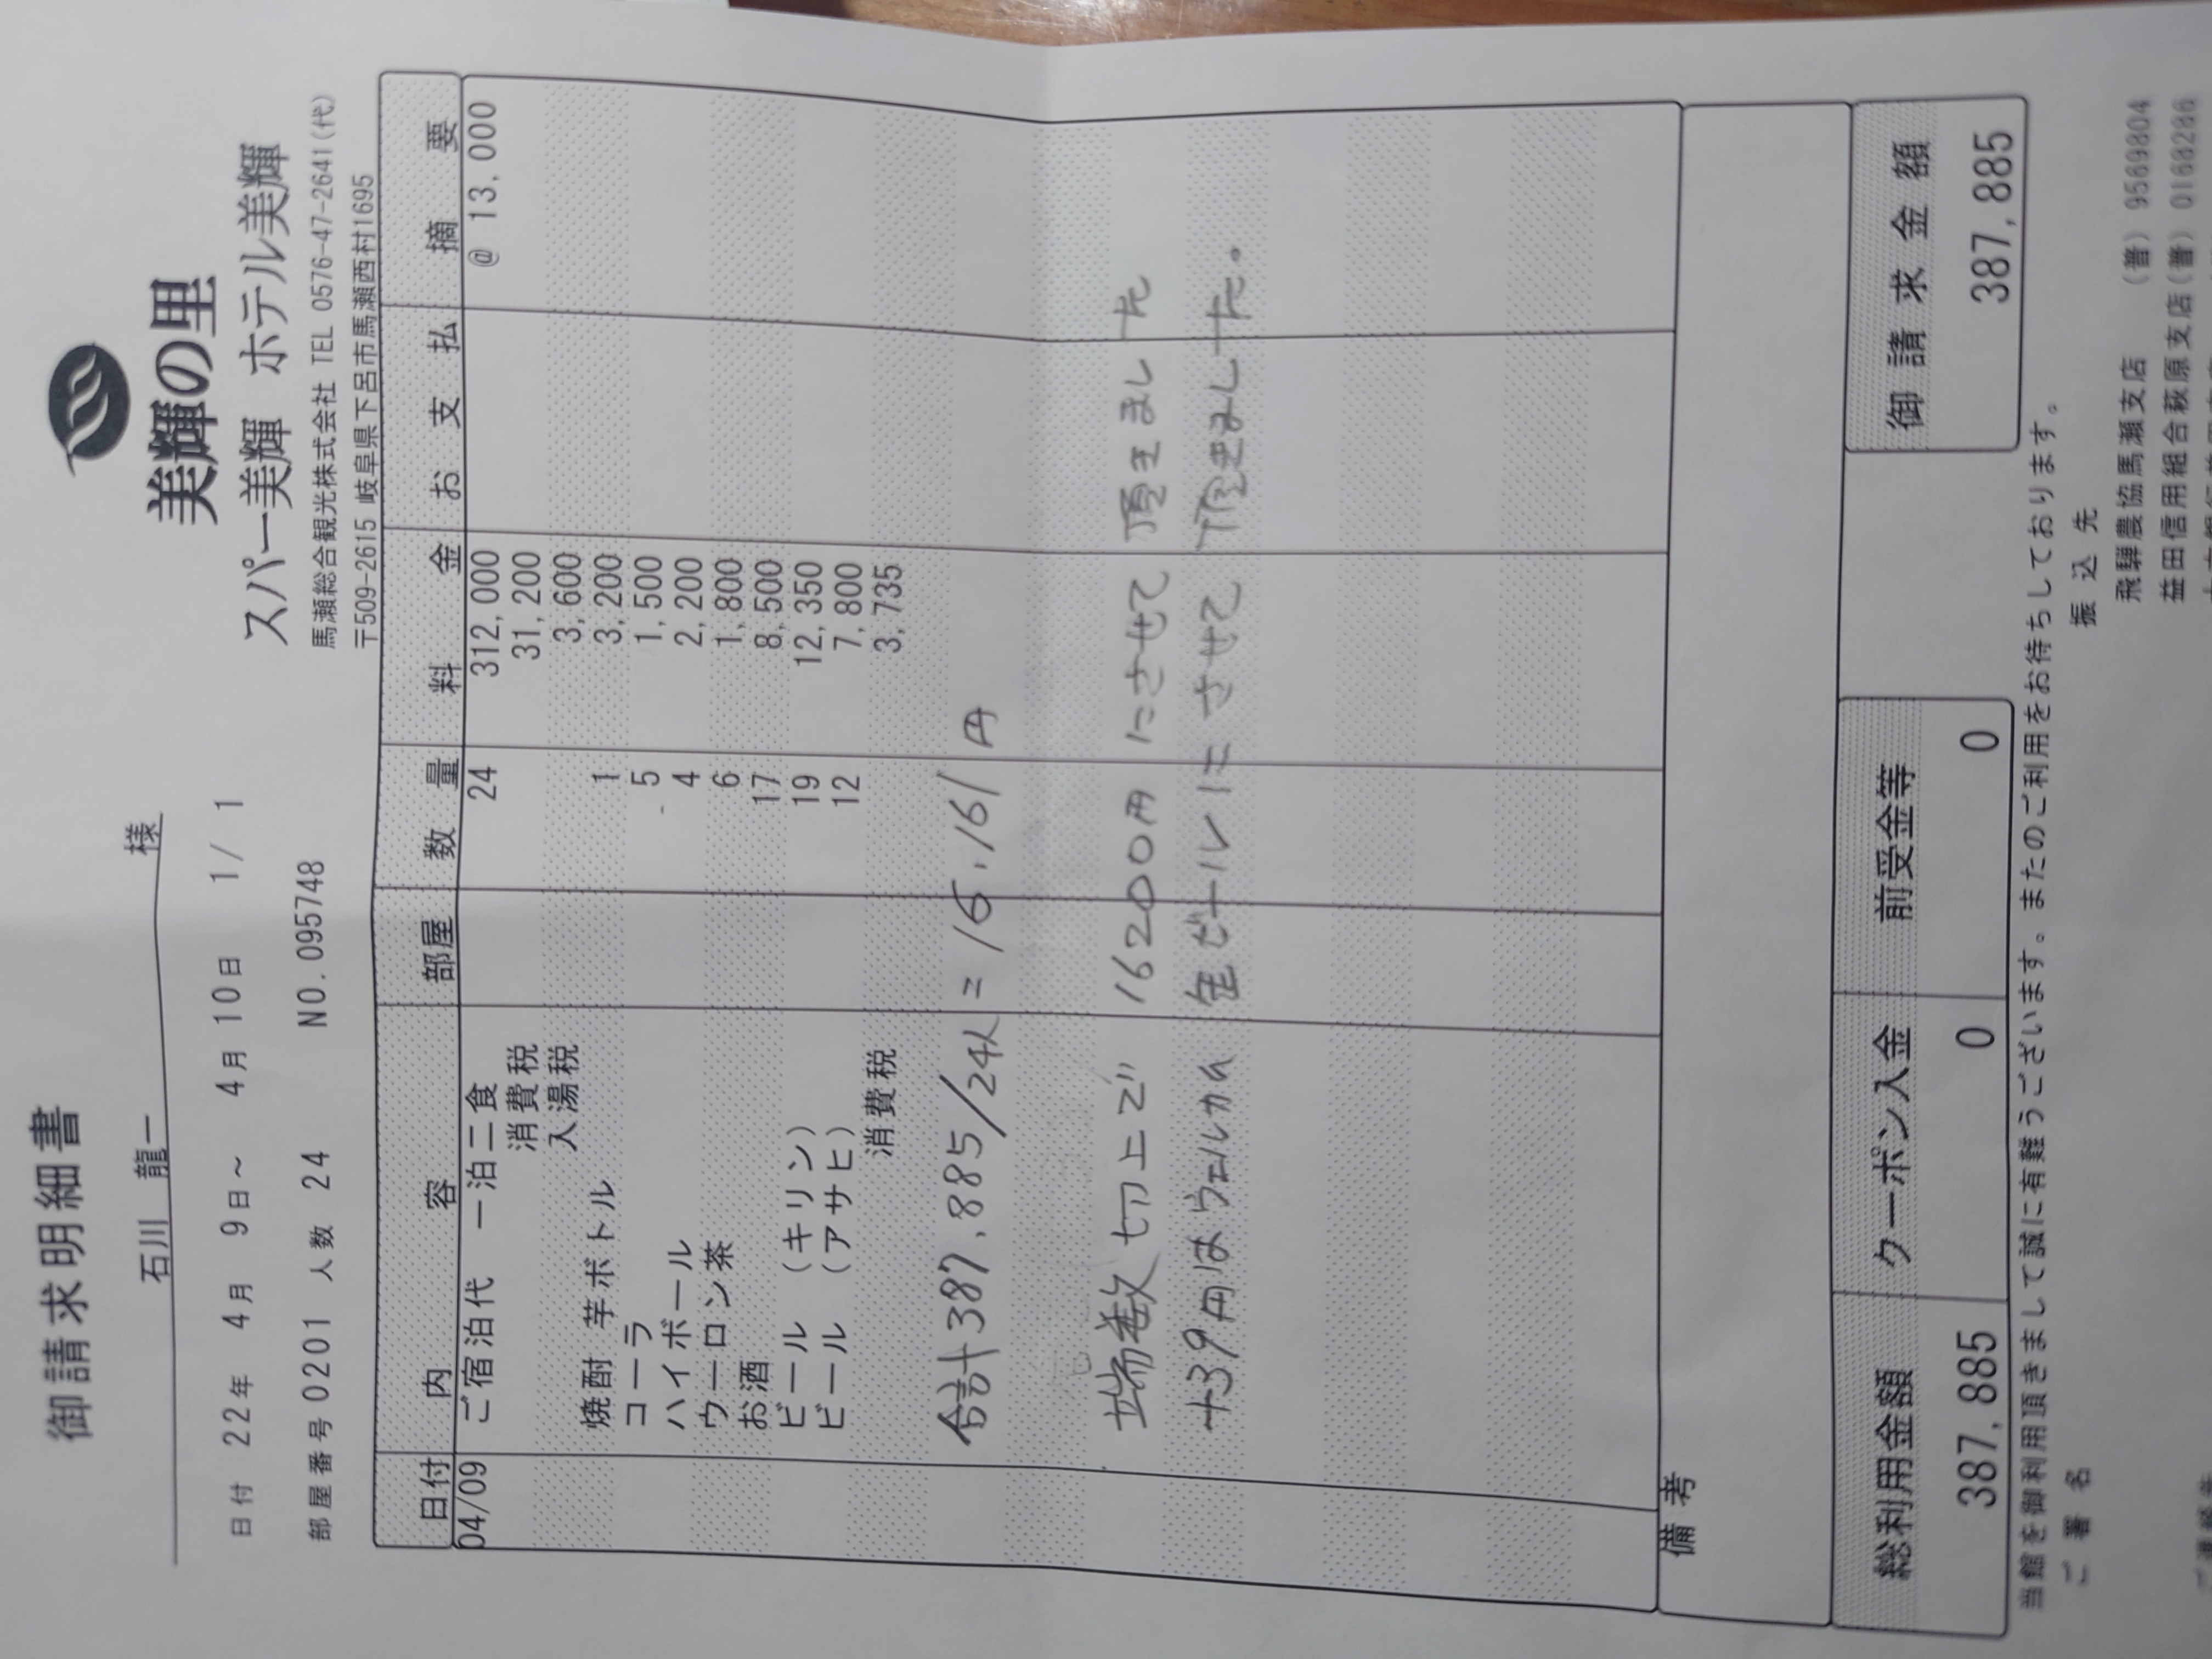 御請求明細書
石川 龍一 様
日付 22年 4月 9日～ 4月 10日 1/ 1
部屋番号 0201 人数 24 NO.095748
美輝の里
スパー美輝 ホテル美輝
馬瀬総合観光株式会社 TEL 0576-47-2641(代)
〒509-2615 岐阜県下呂市馬瀬西村1695
日付 内容 部屋 数量 料金 お支払 摘要
04/09 ご宿泊代 一泊二食 24 312,000 @ 13,000
消費税 31,200
入湯税 3,600
焼酎 芋ボトル 1 3,200
コーラ 5 1,500
ハイボール 4 2,200
ウーロン茶 6 1,800
お酒 17 8,500
ビール （キリン） 19 12,350
ビール （アサヒ） 12 7,800
消費税 3,735
合計387.885/24人 = 16.161円
端数切上で 16200円にさせて頂きました
+39円はウェルカム 缶ビールにさせて頂きました。
備考
総利用金額 クーポン入金 前受金等 御請求金額
387,885 0 0 387,885
当館を御利用頂きまして誠に有難うございます。またのご利用をお待ちしております。
ご署名 振込先
飛騨農協馬瀬支店 (普) 9569804
益田信用組合萩原支店(普) 0168286